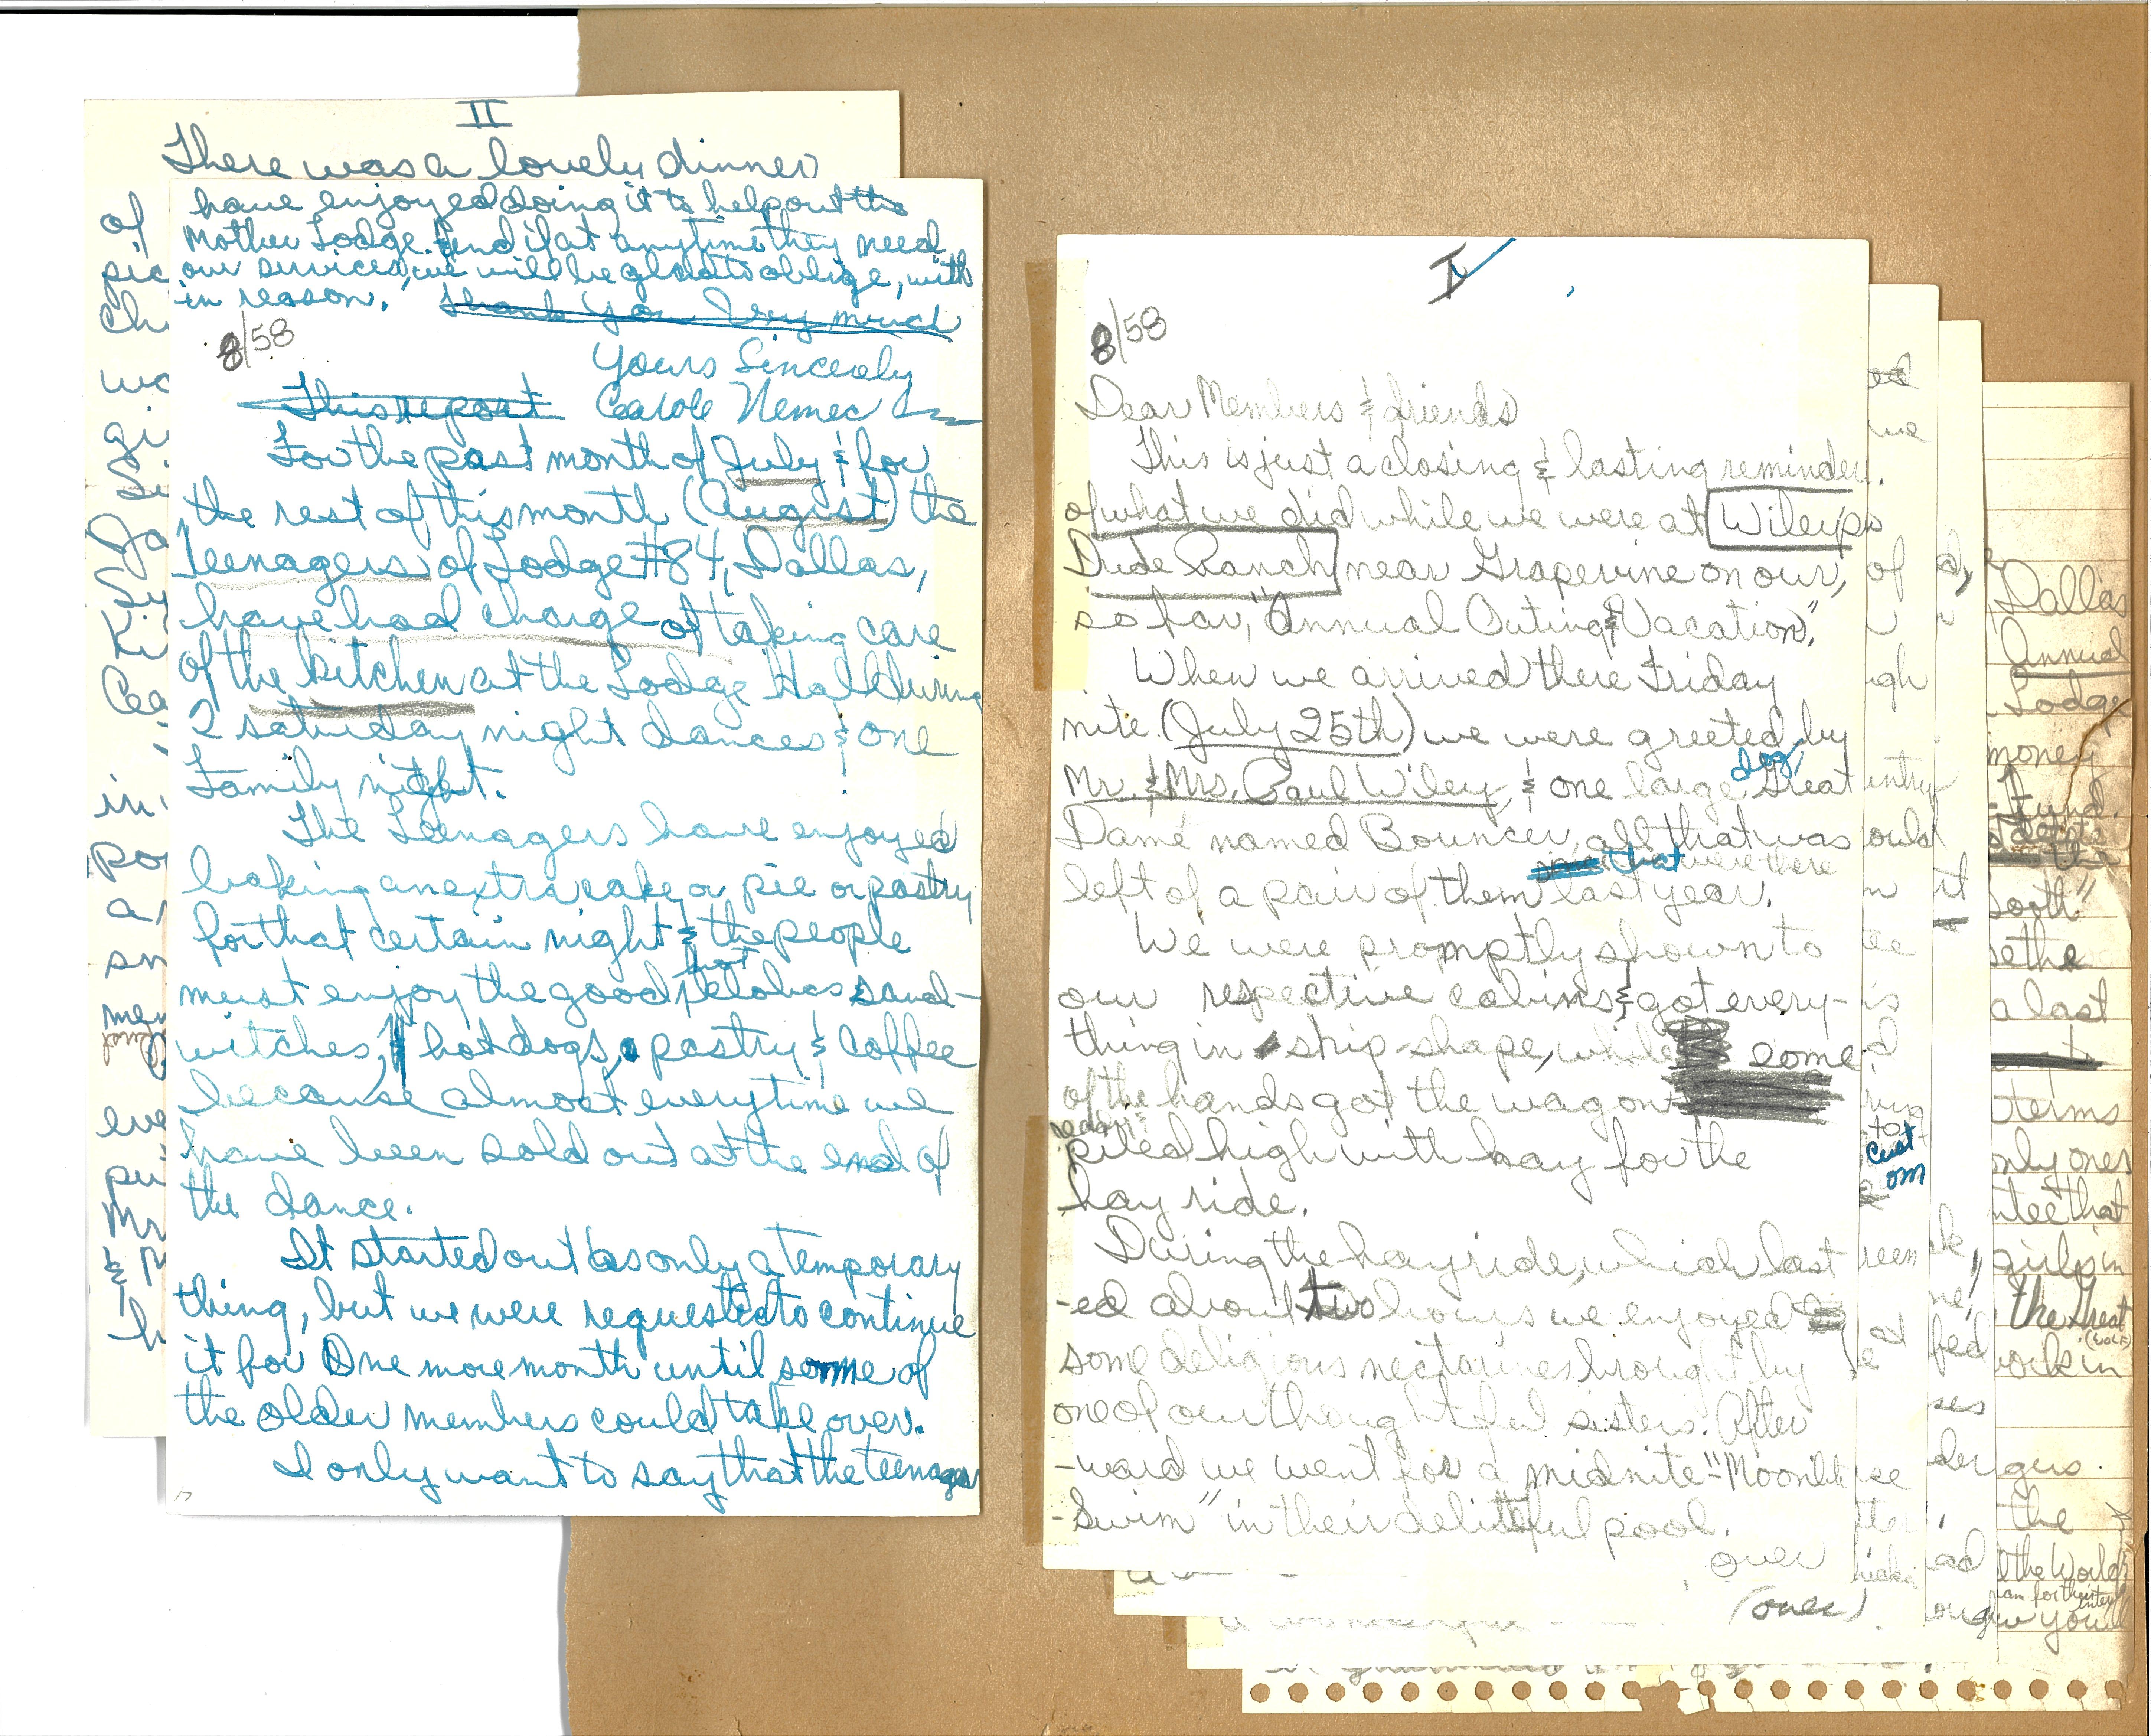 II
There was a lovely dinner
of
pic
have enjoyed doing it to help out the
Mother Lodge. And if at anytime they need
our services, we will be glad to oblige, with
in reason. Thank You Very much
8/58
Yours Sincerely
This report Carole Nemec
For the past month of July & for
the rest of this month (August) the
Teenagers of Lodge #84, Dallas,
have had charge of taking care
of the kitchen at the Lodge Hall during
2 saturday night dances & one
Family night.
The Teenagers have enjoyed
baking an extra cake or pie or pastry
for that certain night & the people
must enjoy the good hot sand-
witches, hot dogs, pastry & coffee
because almost everytime we
have been sold out at the end of
the dance.
It started out as only a temporary
thing, but we were requested to continue
it for One more month until some of
the older members could take over.
I only want to say that the teenagers
I
8/58
Dear Members & friends
This is just a closing & lasting reminder
of what we did while we were at Wileys
Dude Ranch near Grapevine on our,
so far, "Annual Outing & Vacation".
When we arrived there Friday
nite (July 25th) we were greeted by
Mr. & Mrs. Paul Wiley, & one large dog, Great
Dame named Bouncer, all that was
that were there
left of a pair of them last year.
We were promptly shown to
our respective cabins, & got every-
thing in ship-shape, while some
of the hands got the wagon
ready
piled high with hay for the
hay ride.
During the hayride, which last
-ed about two hours we enjoyed
some deligious nectarines brought by
one of our thoughtful sisters. After
-ward we went for a midnite "Moonlite
-Swim" in their deliteful pool.
over
(over)
we
of
Custom
Dallas
Annual
Lodge
money
Fund.
the
South"
a last
terms
only ones
girls in
the Great
(WOLF)
work in
the
the World